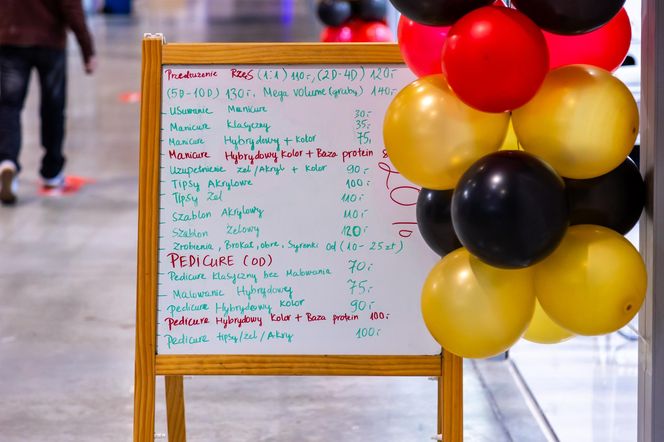 Przedłużenie RZęS (1:1) 110,-, (2D-4D) 120,-
(5D-10D) 130,-, Mega volume (gruby) 140,-
Usuwanie Manicure 30,-
Manicure Klasyczny 35,-
Manicure Hybrydowy + kolor 75,-
Manicure Hybrydowy Kolor + Baza protein
Uzupełnienie żel/Akryl + kolor 90,-
Tipsy Akrylowe 100,-
Tipsy Żel 110,-
Szablon Akrylowy 110,-
Szablon Żelowy 120,-
Zrobienia, Brokat, obre, Syrenki od (10-25zł)
PEDICURE (OD)
Pedicure Klasyczny bez Malowania 70,-
Malowanie Hybrydowy 75,-
Pedicure Hybrydowy Kolor 90,-
Pedicure Hybrydowy Kolor + Baza protein 100,-
Pedicure tipsy/żel/Akryl 100,-